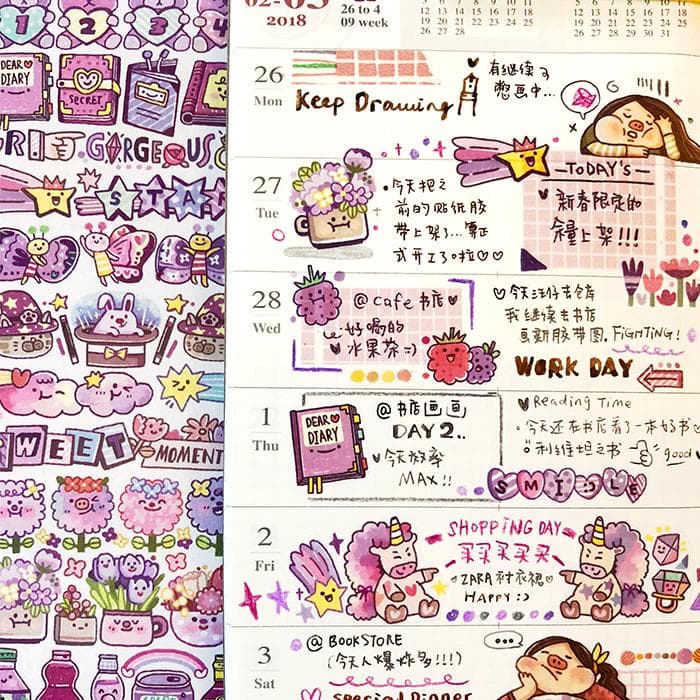 1 2 3 4
DEAR DIARY
SECRET
GORGEOUS
STAR
SWEET
MOMENT
02-03
2018
26 to 4
09 week
12 13 14 15 16 17 18
19 20 21 22 23 24 25
26 27 28
12 13 14 15 16 17 18
19 20 21 22 23 24 25
26 27 28 29 30 31
26
Mon
Keep Drawing
有继续
憋画中...
27
Tue
今天把之
前的贴纸胶
带上架了...算正
式开工了啦
TODAY'S
新春限定的
全上架!!!
28
Wed
@ cafe 书店
好喝的
水果茶=)
今天汪仔去仓库
我继续去书店
画新胶带图, FIGHTING!
WORK DAY
1
Thu
DEAR
DIARY
@ 书店画画
DAY 2..
今天效率
MAX!!
Reading Time
今天还在书店看了一本好书
"利维坦之书" good
SMILE
2
Fri
SHOPPING DAY
买买买买买
ZARA 衬衣裙
HAPPY :)
3
Sat
@ BOOKSTORE
(今天人爆炸多!!!)
special Dinner